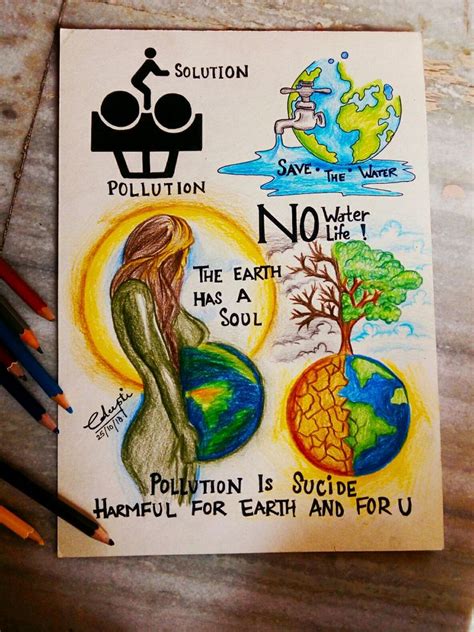 SOLUTION
POLLUTION
SAVE "THE" WATER
NO Water
Life !
THE EARTH
HAS A
SOUL
25/10/18
POLLUTION IS SUCIDE
HARMFUL FOR EARTH AND FOR U